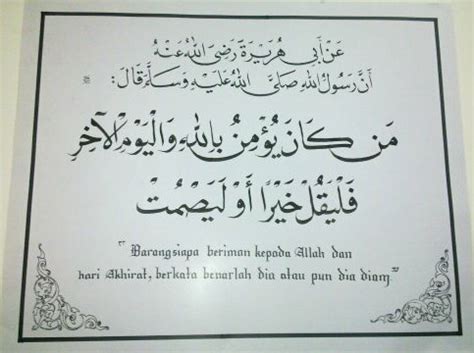 عَنْ أَبِي هُرَيْرَةَ رَضِيَ اللهُ عَنْهُ
أَنَّ رَسُولَ اللهِ صَلَّى اللهُ عَلَيْهِ وَسَلَّمَ قَالَ:
مَنْ كَانَ يُؤْمِنُ بِاللهِ وَالْيَوْمِ الْآخِرِ
فَلْيَقُلْ خَيْرًا أَوْ لِيَصْمُتْ
"Barangsiapa beriman kepada Allah dan
hari Akhirat, berkata benarlah dia atau pun dia diam."